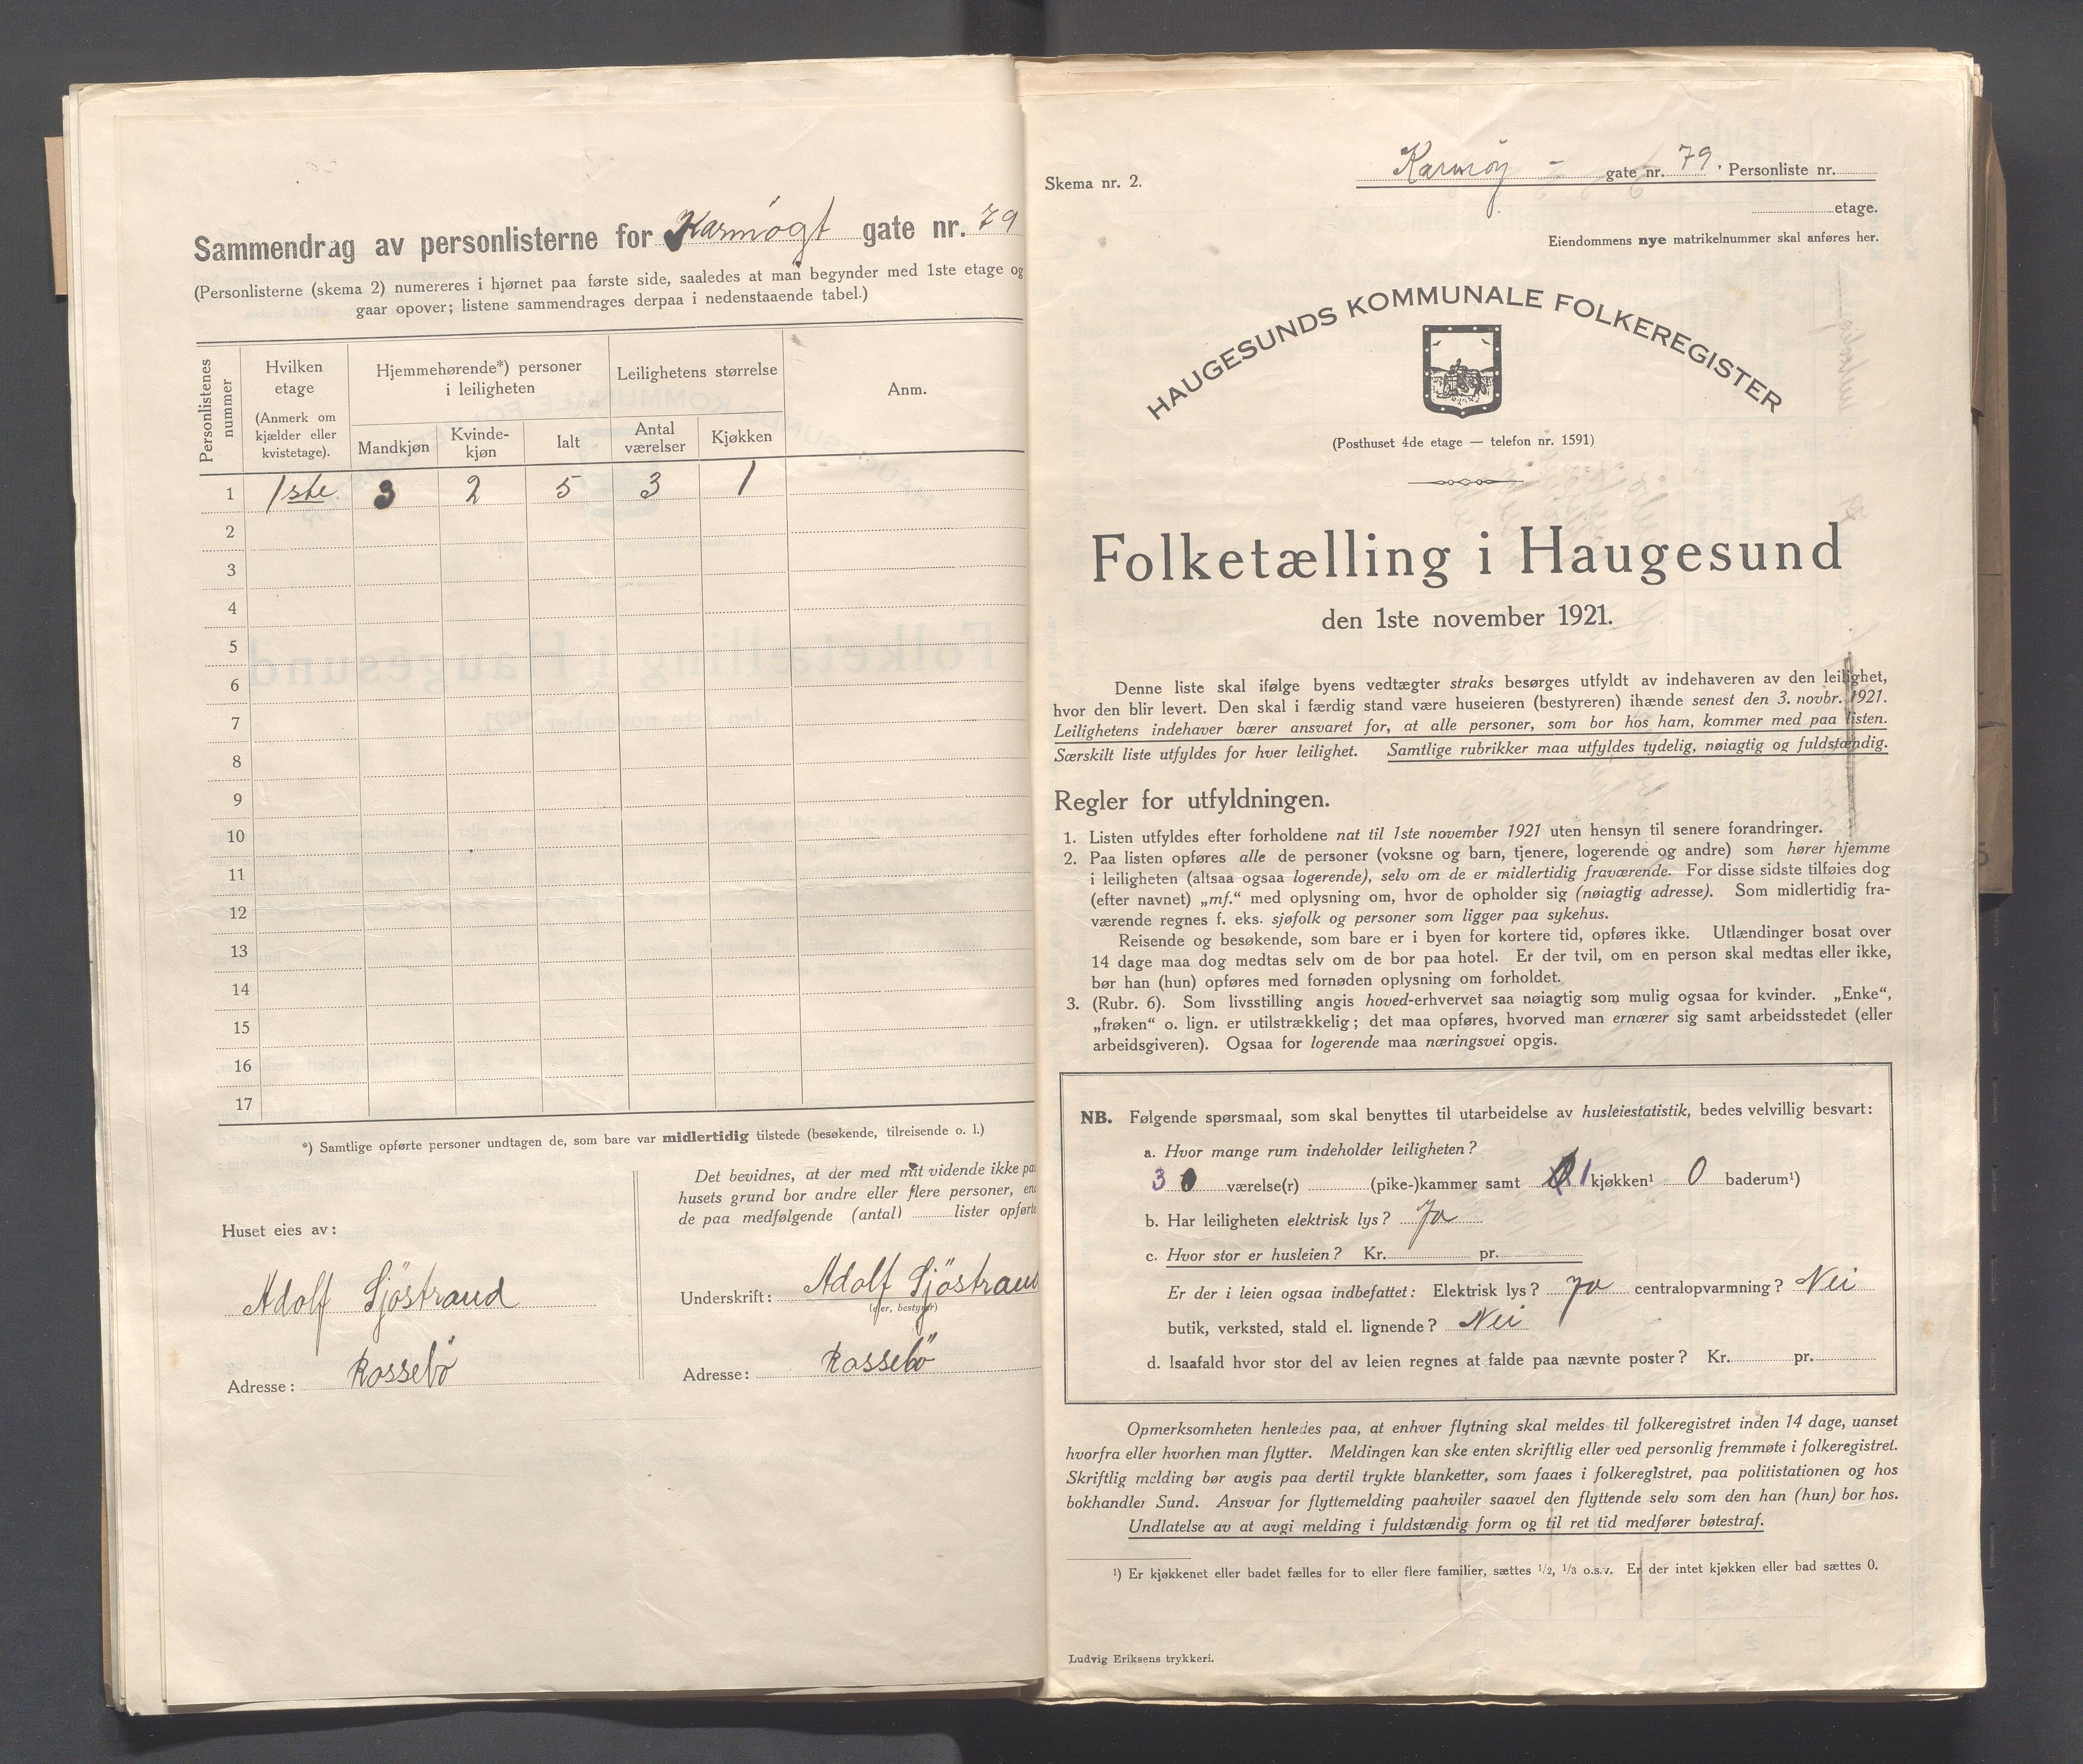 Sammendrag av personlisterne for Karmøgt gate nr. 79
(Personlisterne (skema 2) numereres i hjørnet paa første side, saaledes at man begynder med 1ste etage og
gaar opover; listene sammendrages derpaa i nedenstaaende tabel.)
Personlistenes nummer
Hvilken etage
(Anmerk om kjælder eller kvistetage).
Hjemmehørende*) personer i leiligheten
Leilighetens størrelse
Anm.
Mandkjøn
Kvinde-kjøn
Ialt
Antal værelser
Kjøkken
1 1ste 3 2 5 3 1
2
3
4
5
6
7
8
9
10
11
12
13
14
15
16
17
*) Samtlige opførte personer undtagen de, som bare var midlertidig tilstede (besøkende, tilreisende o. l.)
Huset eies av:
Adolf Sjöstrand
Adresse: Rossebö
Det bevidnes, at der med mit vidende ikke paa
husets grund bor andre eller flere personer, end
de paa medfølgende (antal) lister opførte
Underskrift: Adolf Sjöstrand
(eier, bestyrer)
Adresse: Rossebö
Skema nr. 2.
Karmöy - gate nr. 79. Personliste nr.
etage.
Eiendommens nye matrikelnummer skal anføres her.
HAUGESUNDS KOMMUNALE FOLKEREGISTER
(Posthuset 4de etage — telefon nr. 1591)
Folketælling i Haugesund
den 1ste november 1921.
Denne liste skal ifølge byens vedtægter straks besørges utfyldt av indehaveren av den leilighet,
hvor den blir levert. Den skal i færdig stand være huseieren (bestyreren) ihænde senest den 3. novbr. 1921.
Leilighetens indehaver bærer ansvaret for, at alle personer, som bor hos ham, kommer med paa listen.
Særskilt liste utfyldes for hver leilighet. Samtlige rubrikker maa utfyldes tydelig, nøiagtig og fuldstændig.
Regler for utfyldningen.
1. Listen utfyldes efter forholdene nat til 1ste november 1921 uten hensyn til senere forandringer.
2. Paa listen opføres alle de personer (voksne og barn, tjenere, logerende og andre) som hører hjemme
i leiligheten (altsaa ogsaa logerende), selv om de er midlertidig fraværende. For disse sidste tilføies dog
(efter navnet) „mf.“ med oplysning om, hvor de opholder sig (nøiagtig adresse). Som midlertidig fra-
værende regnes f. eks. sjøfolk og personer som ligger paa sykehus.
Reisende og besøkende, som bare er i byen for kortere tid, opføres ikke. Utlændinger bosat over
14 dage maa dog medtas selv om de bor paa hotel. Er der tvil, om en person skal medtas eller ikke,
bør han (hun) opføres med fornøden oplysning om forholdet.
3. (Rubr. 6). Som livsstilling angis hoved-erhvervet saa nøiagtig som mulig ogsaa for kvinder. „Enke“,
„frøken“ o. lign. er utilstrækkelig; det maa opføres, hvorved man ernærer sig samt arbeidsstedet (eller
arbeidsgiveren). Ogsaa for logerende maa næringsvei opgis.
NB. Følgende spørsmaal, som skal benyttes til utarbeidelse av husleiestatistik, bedes velvillig besvart:
a. Hvor mange rum indeholder leiligheten?
3 0 værelse(r) (pike-)kammer samt 0 1 kjøkken¹ 0 baderum¹)
b. Har leiligheten elektrisk lys? Ja
c. Hvor stor er husleien? Kr. pr.
Er der i leien ogsaa indbefattet: Elektrisk lys? Ja centralopvarmning? Nei
butik, verksted, stald el. lignende? Nei
d. Isaafald hvor stor del av leien regnes at falde paa nævnte poster? Kr. pr.
Opmerksomheten henledes paa, at enhver flytning skal meldes til folkeregistret inden 14 dage, uanset
hvorfra eller hvorhen man flytter. Meldingen kan ske enten skriftlig eller ved personlig fremmøte i folkeregistret.
Skriftlig melding bør avgis paa dertil trykte blanketter, som faaes i folkeregistret, paa politistationen og hos
bokhandler Sund. Ansvar for flyttemelding paahviler saavel den flyttende selv som den han (hun) bor hos.
Undlatelse av at avgi melding i fuldstændig form og til ret tid medfører bøtestraf.
¹) Er kjøkkenet eller badet fælles for to eller flere familier, sættes 1/2, 1/3 o.s.v. Er der intet kjøkken eller bad sættes 0.
Ludvig Eriksens trykkeri.